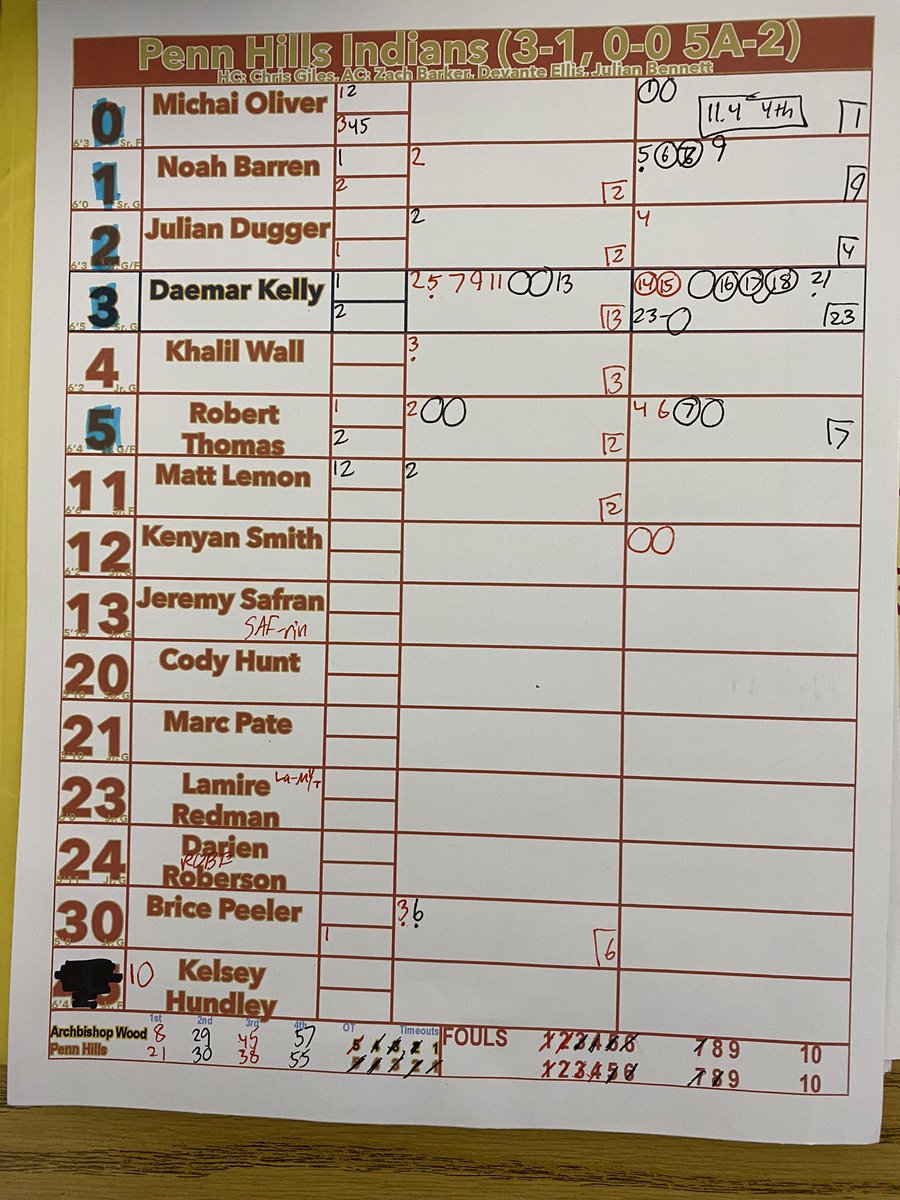 Penn Hills Indians (3-1, 0-0 5A-2)
HC: Chris Giles, AC: Zach Barker, Devante Ellis, Julian Bennett
0 6'3 Sr. F Michai Oliver 12 345 1 11.4 4th 1
1 6'0 Sr. G Noah Barren 1 2 2 2 5 6 9 9
2 6'3 G/F Julian Dugger 1 2 2 4 4
3 6'5 Sr. G Daemar Kelly 1 2 2 5 7 9 11 13 13 14 15 16 17 18 21 23- 23
4 6'2 Jr. G Khalil Wall 3 3
5 6'4 G/F Robert Thomas 1 2 2 2 4 6 7 7
11 Matt Lemon 12 2 2
12 Kenyan Smith
13 Jeremy Safran
SAF-rin
20 Cody Hunt
21 Marc Pate
23 Lamire Redman
24 Darien Roberson
30 Brice Peeler 1 3 6 6
10 6'4 Kelsey Hundley
1st 2nd 3rd 4th OT Timeouts
Archbishop Wood 8 29 45 57 5 4 3 2 1 FOULS 1 2 3 4 5 6 7 8 9 10
Penn Hills 21 30 38 55 5 4 3 2 1 1 2 3 4 5 6 7 8 9 10